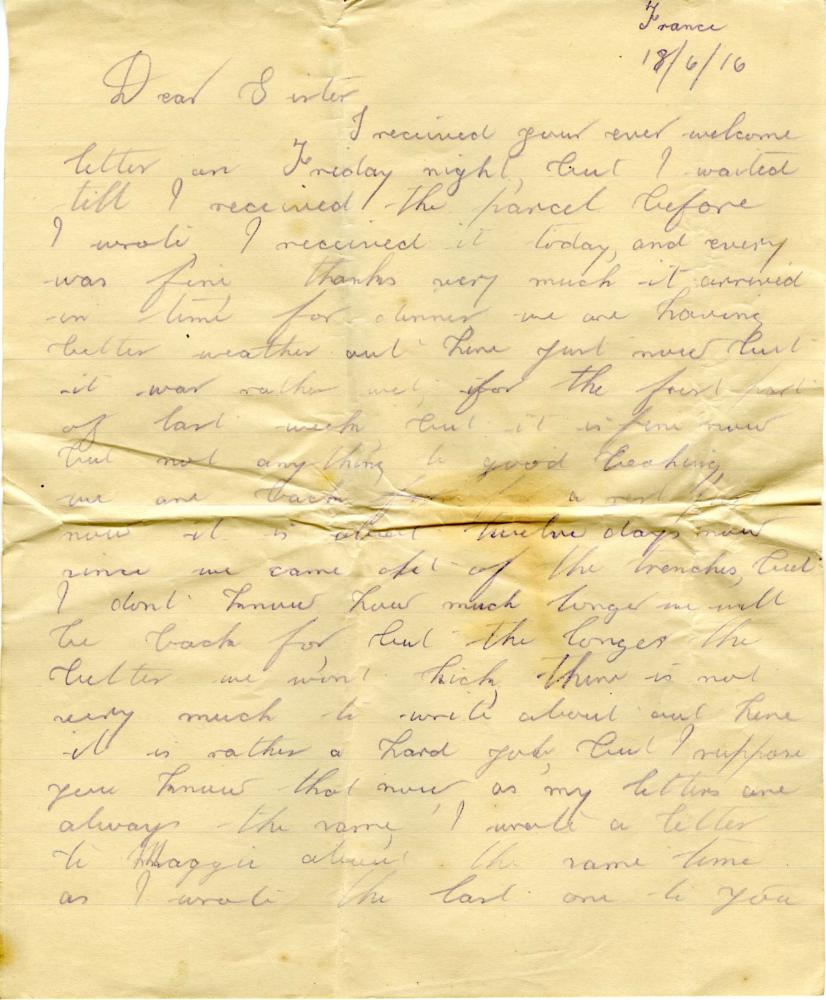 France
18/6/16
Dear Sister
I received your ever welcome
letter on Friday night, but I waited
till I received the parcel before
I wrote I received it today, and every
was fine thanks very much it arrived
in time for dinner we are having
better weather out here just now but
it was rather wet, for the first part
of last week, but it is fine now
but not anything to good looking,
we are back from for a rest
now it is about twelve days now
since we came out of the trenches, but
I dont know how much longer we will
be back for but the longer the
better we wont kick, there is not
very much to write about out here
it is rather a hard job, but I suppose
you know that now, as my letters are
always the same, I wrote a letter
to Maggie about the same time
as I wrote the last one to you